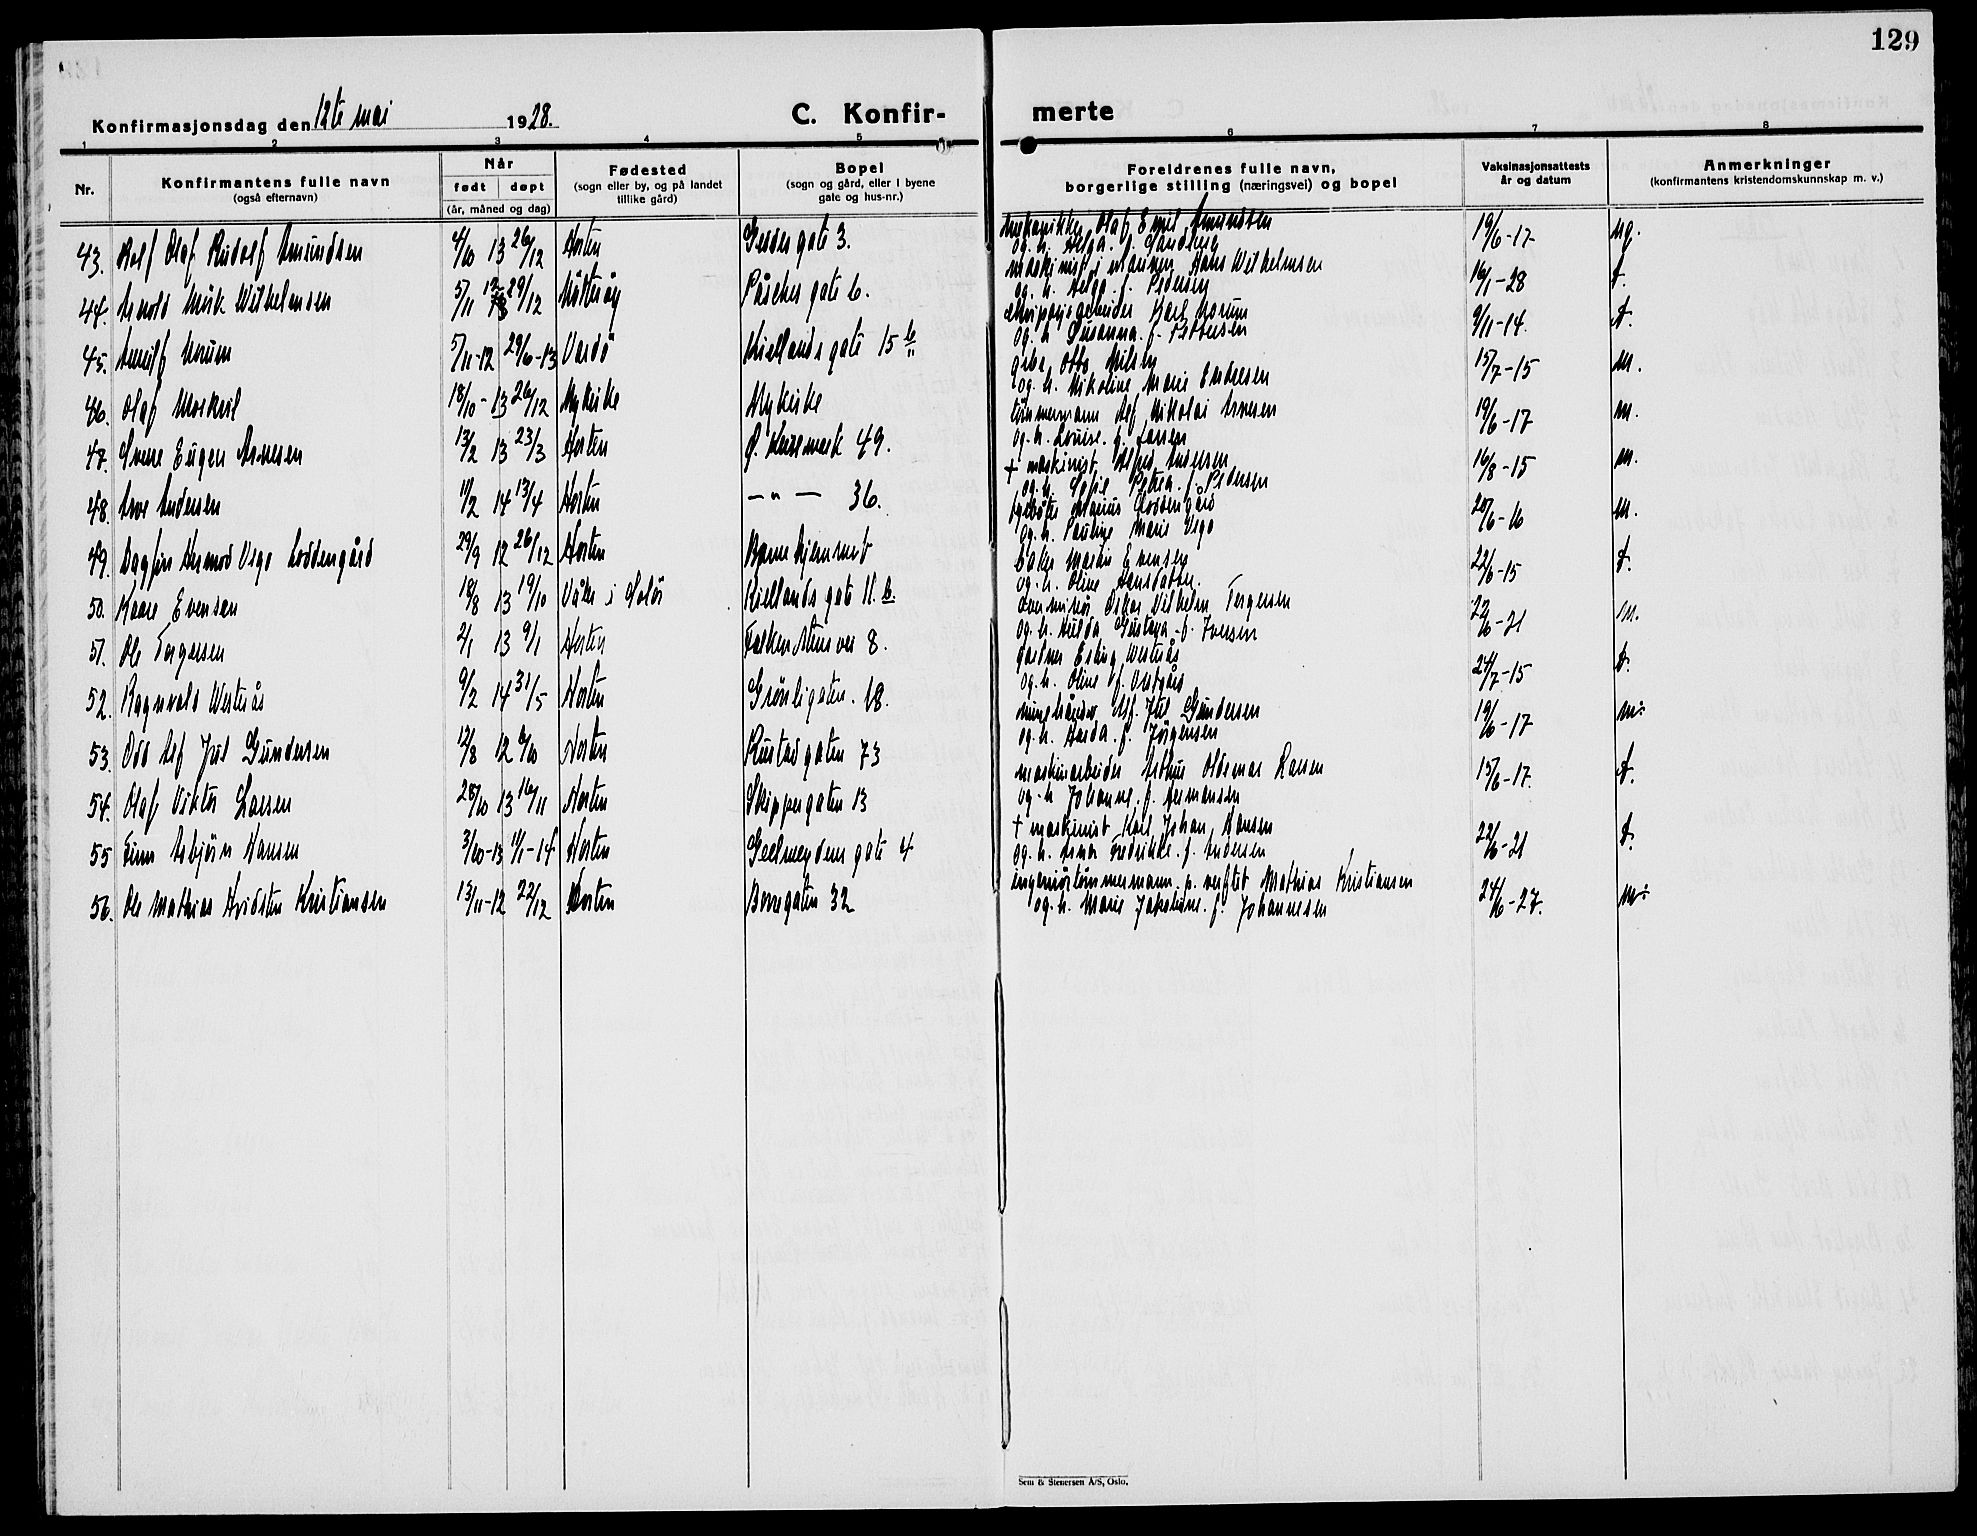 129
Konfirmasjonsdag den 12te mai 1928. C. Konfirmerte
1 2 3 4 5 6 7 8
Nr. Konfirmantens fulle navn (også efternavn) Når født døpt (år, måned og dag) Fødested (sogn eller by, og på landet tillike gård) Bopel (sogn og gård, eller i byene gate og hus-nr.) Foreldrenes fulle navn, borgerlige stilling (næringsvei) og bopel Vaksinasjonsattests år og datum Anmerkninger (konfirmantens kristendomskunnskap m. v.)
43. Rolf Olaf Rudolf Amundsen 4/10 13 26/12 Horten gate 3. mekaniker Olaf Emil Amundsen 19/6-17 mg.
og h. Helga f. Sandberg
44. Arnold Wilhelmsen 5/11 12 29/12 Nøtterøy Påskes gate 6. maskinist i marinen Hans Wilhelmsen 16/1-28 t.
og h. Helga f. Pedersen
45. Arnulf Morum 5/11-12 29/6-13 Vardö Kiellands gate 15 b Karl Morum 9/11-14. t.
og h. Susanna f. Pettersen
46. Olaf 18/10-13 26/12 Nykirke Nykirke Otto Nilsen 15/7-15 m.
og h. Nikoline Marie Endresen
47. Sverre Eugen Arnesen 13/2 13 23/3 Horten Ø. 49. tømmermann Alf Nikolai Arnesen 19/6-17 m.
og h. Louise f. Larsen
48. Arve Andersen 11/2 14 13/4 Horten — " — 36. + maskinist Alfred Andersen 16/8-15 m.
og h. Petra f. Pedersen
49. Dagfin Hermod Vego Loddengård 29/9 12 26/12 Horten Barnehjemmet Marius Loddengård 20/6-16 m.
og h. Pauline Marie Vego
50. Kaare Evensen 18/8 13 19/10 Våler i Solör Kiellands gate 11. b. baker Martin Evensen 22/6-15 t.
og h. Oline Hansdatter.
51. Ole Torgersen 2/1 13 9/1 Horten Falkenstens vei 8. overminör Oskar Wilhelm Torgersen 22/6-21 m.
og h. Hulda Gustava f. Iversen
52. Ragnvald Westerås 9/2 14 31/5 Horten Grønligaten. 18. gartner Erling Westerås 24/7-15 t.
og h. Oline f.
53. Odd Alf Jul Gundersen 12/8 12 6/10 Horten Rustadgaten 73 Alf. Jul Gundersen 19/6-17 m:
og h. f. Jörgensen
54. Olaf Viktor Larsen 28/10 13 16/11 Horten Skippergaten 13 maskinarbeider Arthur Oldemar Larsen 15/6-17. t.
og h Johanne f. Hermansen
55 Finn Asbjörn Hansen 3/10-13 11/1-14 Horten Geelmeydens gate 4 + maskinist Karl Johan Hansen 22/6-21 t.
og h. Anna Fredrikke f. Andersen
56. Ole Mathias Kristiansen 13/11-12 22/12 Horten Borregaten 32 p. verftet Mathias Kristiansen 24/6-27. m:
og h. Marie Jakobine f. Johannesen
Sem & Stenersen A/S, Oslo.